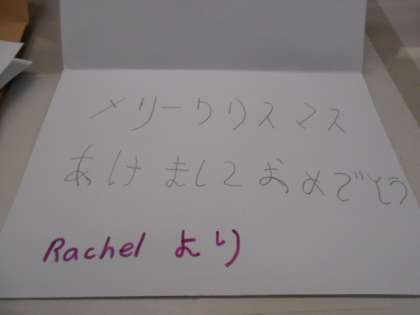 メリークリスマス
あけましておめでとう
Rachel より